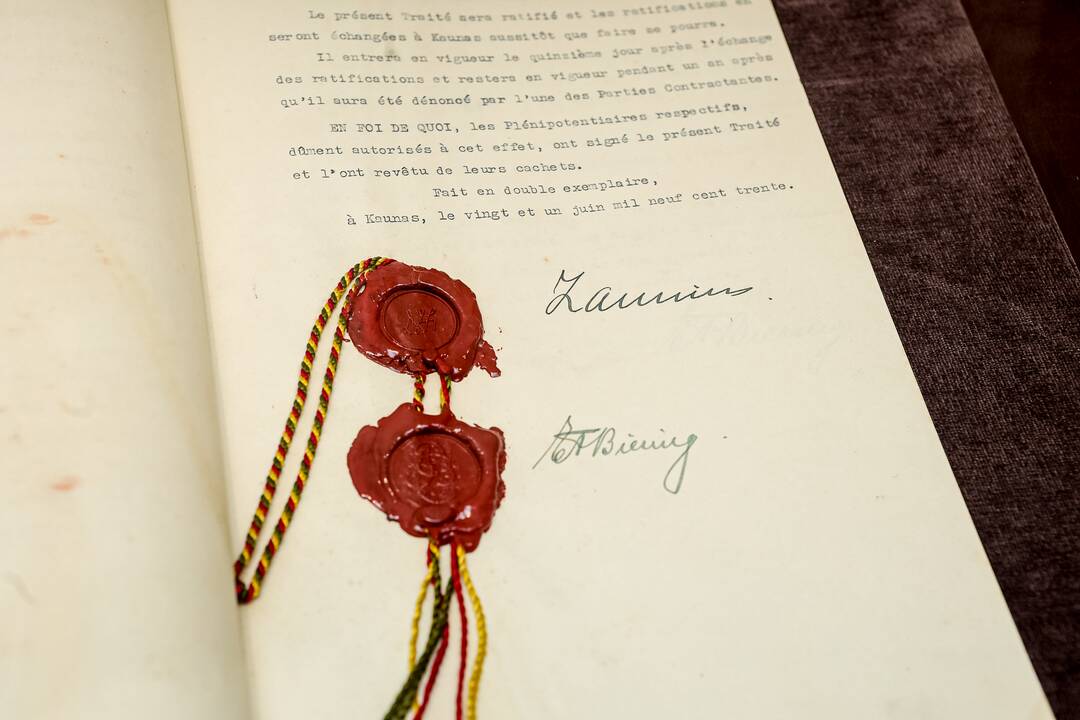 Le présent Traité sera ratifié et les ratifications en
seront échangées à Kaunas aussitôt que faire se pourra.
Il entrera en vigueur le quinzième jour après l'échange
des ratifications et restera en vigueur pendant un an après
qu'il aura été dénoncé par l'une des Parties Contractantes.
EN FOI DE QUOI, les Plénipotentiaires respectifs,
dûment autorisés à cet effet, ont signé le présent Traité
et l'ont revêtu de leurs cachets.
Fait en double exemplaire,
à Kaunas, le vingt et un juin mil neuf cent trente.
Zaunius.